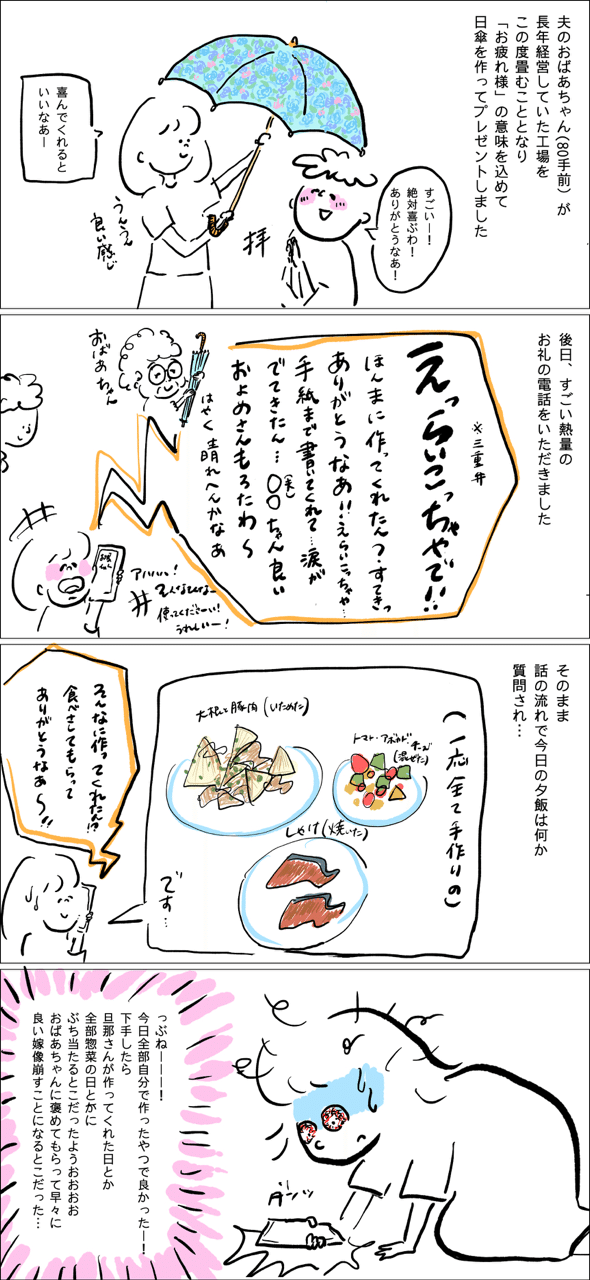 夫のおばあちゃん(80手前)が
長年経営していた工場を
この度畳むこととなり
「お疲れ様」の意味を込めて
日傘を作ってプレゼントしました
すごいー!
絶対喜ぶわ!
ありがとうなあ!
拝
喜んでくれると
いいなあー
うんうん
良い感じ
後日、すごい熱量の
お礼の電話をいただきました
えっらいこっちゃやで!!
※三重弁
ほんまに作ってくれたんっすてきっ
ありがとうなあ!!えらいこっちゃ…
手紙まで書いてくれて…涙が
でてきたん…〇〇ちゃん良い
(夫)
およめさんもろたわ〜
はやく晴れへんかなあ
おばあちゃん
アハハハ!
そんなそんなー
使ってくださーい!
うれしいー!
そのまま
話の流れで今日の夕飯は何か
質問され…
(一応全て手作りの)
トマト・アボカド・チーズ
(混ぜた)
大根と豚肉(いためた)
しゃけ(焼いた)
です…
そんなに作ってくれたん!?
食べさしてもらって
ありがとうなあ〜!!
っぶねーーー!
今日全部自分で作ったやつで良かったー!
下手したら
旦那さんが作ってくれた日とか
全部惣菜の日とかに
ぶち当たるとこだったようおおおお
おばあちゃんに褒めてもらって早々に
良い嫁像崩すことになるとこだった…
ダンッ